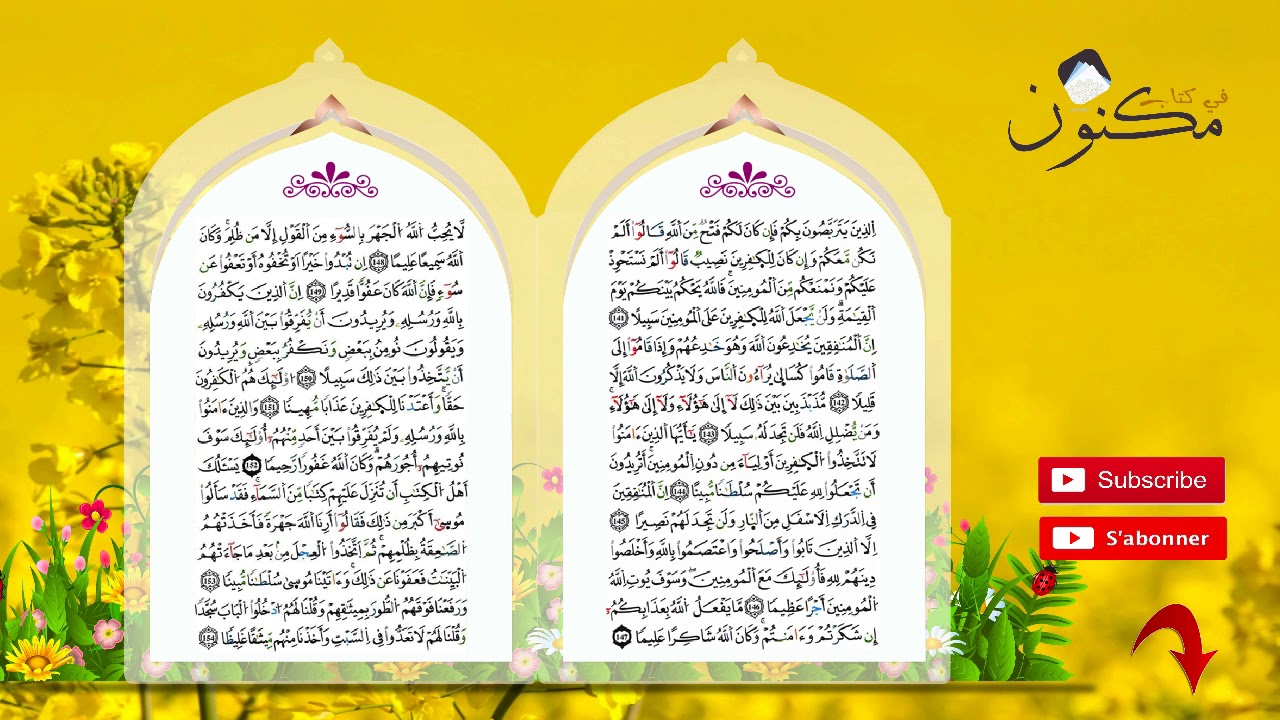 في كتاب
مكنون
اِ۬لذِينَ يَتَرَبَّصُونَ بِكُمْ فَإِن كَانَ لَكُمْ فَتْحٞ مِّنَ اَ۬للَّهِ قَالُوٓاْ أَلَمْ
نَكُن مَّعَكُمْ وَإِن كَانَ لِلْكٰ۪فِرِينَ نَصِيبٞ قَالُوٓاْ أَلَمْ نَسْتَحْوِذْ
عَلَيْكُمْ وَنَمْنَعْكُم مِّنَ اَ۬لْمُومِنِينَۖ فَاللَّهُ يَحْكُمُ بَيْنَكُمْ يَوْمَ
اَ۬لْقِيَٰمَةِۖ وَلَنْ يَّجْعَلَ اَ۬للَّهُ لِلْكٰ۪فِرِينَ عَلَى اَ۬لْمُومِنِينَ سَبِيلاًۖ 141
إِنَّ اَ۬لْمُنَٰفِقِينَ يُخَٰدِعُونَ اَ۬للَّهَ وَهُوَ خَٰدِعُهُمْ وَإِذَا قَامُوٓاْ إِلَى
اَ۬لصَّلَوٰةِ قَامُواْ كُسَال۪ىٰ يُرَآءُونَ اَ۬لنَّاسَ وَلَا يَذْكُرُونَ اَ۬للَّهَ إِلَّا
قَلِيلاٗ 142 مُّذَبْذَبِينَ بَيْنَ ذَٰلِكَ لَآ إِلَىٰ هَٰٓؤُلَآءِ وَلَآ إِلَىٰ هَٰٓؤُلَآءِۖ
وَمَنْ يُّضْلِلِ اِ۬للَّهُ فَلَن تَجِدَ لَهُۥ سَبِيلاٗۖ 143 يَٰٓأَيُّهَا اَ۬لذِينَ ءَامَنُواْ
لَا تَتَّخِذُواْ اُ۬لْكٰ۪فِرِينَ أَوْلِيَآءَ مِن دُونِ اِ۬لْمُومِنِينَۖ أَتُرِيدُونَ
أَن تَجْعَلُواْ لِلهِ عَلَيْكُمْ سُلْطَٰناٗ مُّبِيناًۖ 144 إِنَّ اَ۬لْمُنَٰفِقِينَ
فِے اِ۬لدَّرَكِ اِ۬لَاسْفَلِ مِنَ اَ۬لنّ۪ارِ وَلَن تَجِدَ لَهُمْ نَصِيراً 145
اِلَّا اَ۬لذِينَ تَابُواْ وَأَصْلَحُواْ وَاعْتَصَمُواْ بِاللَّهِ وَأَخْلَصُواْ
دِينَهُمْ لِلهِ فَأُوْلَٰٓئِكَ مَعَ اَ۬لْمُومِنِينَۖ وَسَوْفَ يُوتِ اِ۬للَّهُ
اُ۬لْمُومِنِينَ أَجْراً عَظِيماٗۖ 146 مَّا يَفْعَلُ اُ۬للَّهُ بِعَذَابِكُمُۥٓ
إِن شَكَرْتُمْ وَءَامَنتُمْۖ وَكَانَ اَ۬للَّهُ شَاكِراً عَلِيماٗۖ 147
لَّا يُحِبُّ اُ۬للَّهُ اُ۬لْجَهْرَ بِالسُّوٓءِ مِنَ اَ۬لْقَوْلِ إِلَّا مَن ظُلِمَۖ وَكَانَ
اَ۬للَّهُ سَمِيعاً عَلِيماًۖ 148 إِن تُبْدُواْ خَيْراً اَوْ تُخْفُوهُ أَوْ تَعْفُواْ عَن
سُوٓءٖ فَإِنَّ اَ۬للَّهَ كَانَ عَفُوّاٗ قَدِيراًۖ 149 إِنَّ اَ۬لذِينَ يَكْفُرُونَ
بِاللَّهِ وَرُسُلِهِۦ وَيُرِيدُونَ أَنْ يُّفَرِّقُواْ بَيْنَ اَ۬للَّهِ وَرُسُلِهِۦ
وَيَقُولُونَ نُومِنُ بِبَعْضٖ وَنَكْفُرُ بِبَعْضٖ وَيُرِيدُونَ
أَنْ يَّتَّخِذُواْ بَيْنَ ذَٰلِكَ سَبِيلاً 150 اُوْلَٰٓئِكَ هُمُ اُ۬لْكَٰفِرُونَ
حَقّاٗۖ وَأَعْتَدْنَا لِلْكٰ۪فِرِينَ عَذَاباٗ مُّهِيناٗۖ 151 وَالذِينَ ءَامَنُواْ
بِاللَّهِ وَرُسُلِهِۦ وَلَمْ يُفَرِّقُواْ بَيْنَ أَحَدٖ مِّنْهُمُۥٓ أُوْلَٰٓئِكَ سَوْفَ
نُوتِيهِمُۥٓ أُجُورَهُمْۖ وَكَانَ اَ۬للَّهُ غَفُوراٗ رَّحِيماٗۖ 152 يَسْـَٔلُكَ
أَهْلُ اُ۬لْكِتَٰبِ أَن تُنَزِّلَ عَلَيْهِمْ كِتَٰباٗ مِّنَ اَ۬لسَّمَآءِۖ فَقَدْ سَأَلُواْ
مُوس۪ىٰٓ أَكْبَرَ مِن ذَٰلِكَ فَقَالُوٓاْ أَرِنَا اَ۬للَّهَ جَهْرَةٗ فَأَخَذَتْهُمُ
اُ۬لصَّٰعِقَةُ بِظُلْمِهِمْۖ ثُمَّ اَ۪تَّخَذُواْ اُ۬لْعِجْلَ مِنۢ بَعْدِ مَا جَآءَتْهُمُ
اُ۬لْبَيِّنَٰتُ فَعَفَوْنَا عَن ذَٰلِكَۖ وَءَاتَيْنَا مُوس۪ىٰ سُلْطَٰناٗ مُّبِيناٗۖ 153
وَرَفَعْنَا فَوْقَهُمُ اُ۬لطُّورَ بِمِيثَٰقِهِمْ وَقُلْنَا لَهُمُ اُ۟دْخُلُواْ اُ۬لْبَابَ سُجَّداٗ
وَقُلْنَا لَهُمْ لَا تَعَدُّواْ فِے اِ۬لسَّبْتِ وَأَخَذْنَا مِنْهُم مِّيثَٰقاً غَلِيظاٗۖ 154
Subscribe
S'abonner